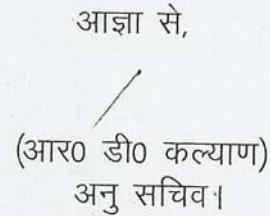 आज्ञा से,
(आर0 डी0 कल्याण)
अनु सचिव।